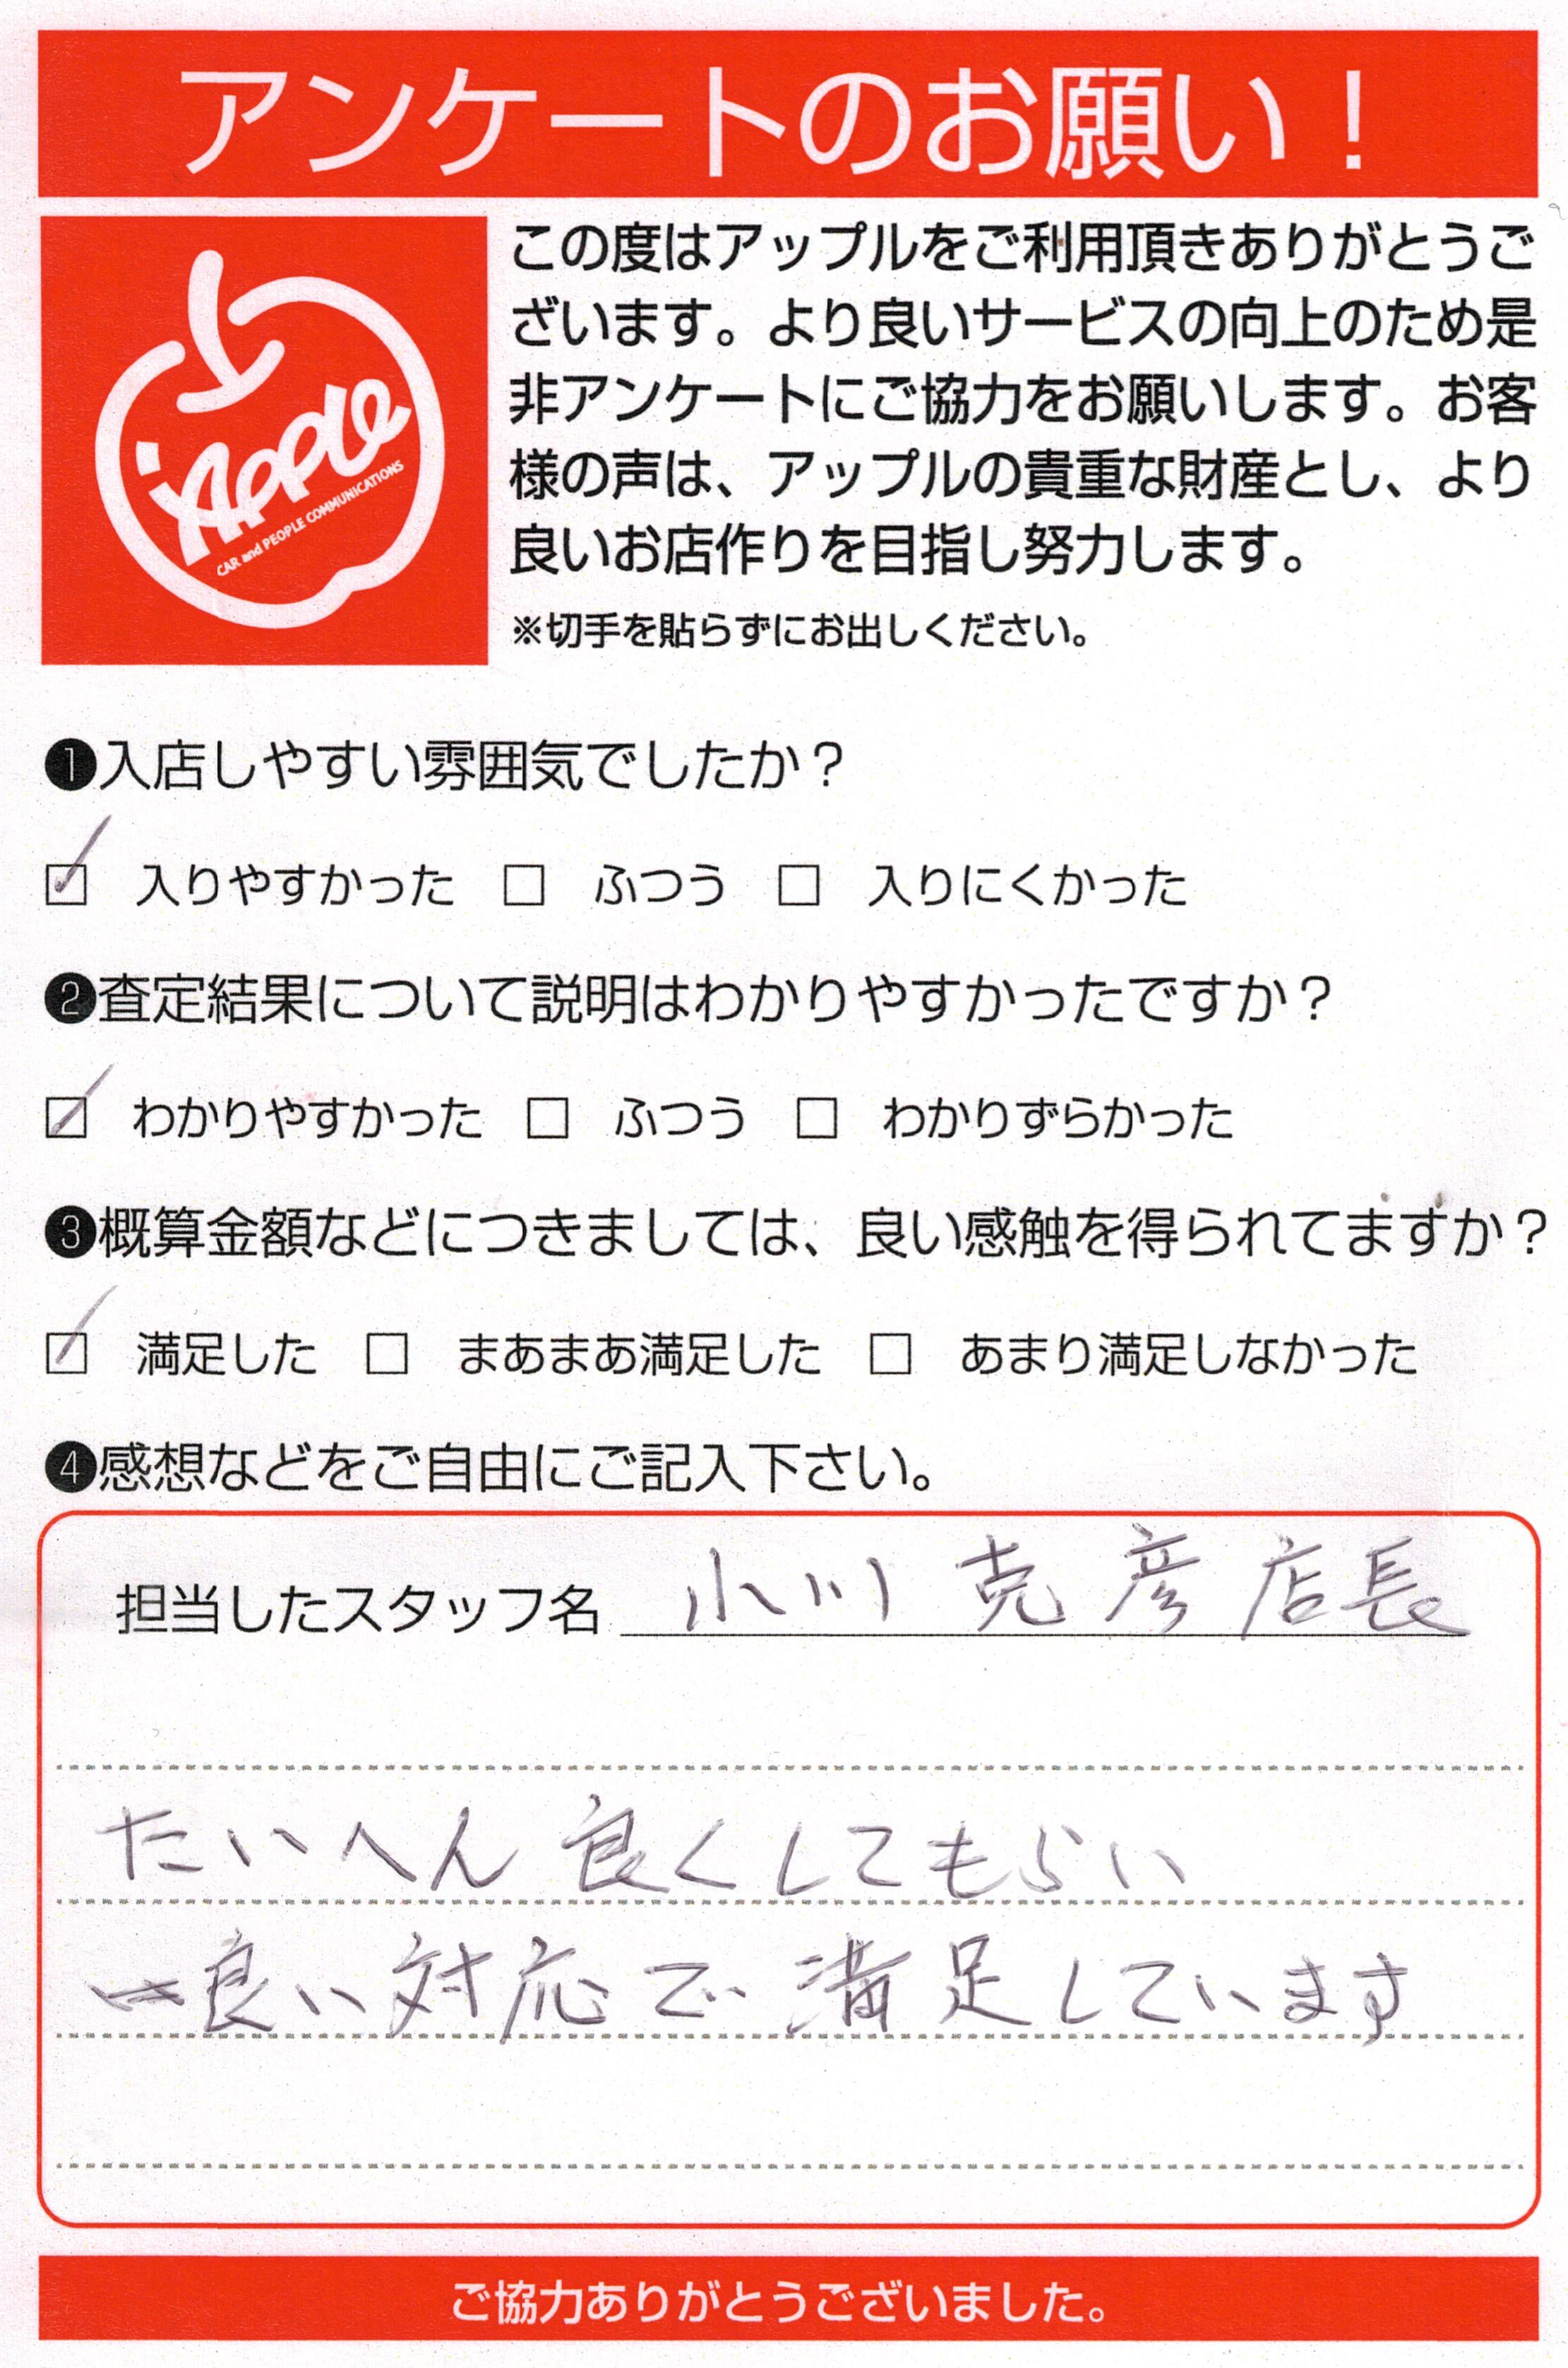 アンケートのお願い！
Apple
CAR and PEOPLE COMMUNICATIONS
この度はアップルをご利用頂きありがとうご
ざいます。より良いサービスの向上のため是
非アンケートにご協力をお願いします。お客
様の声は、アップルの貴重な財産とし、より
良いお店作りを目指し努力します。
※切手を貼らずにお出しください。
❶入店しやすい雰囲気でしたか？
☑ 入りやすかった □ ふつう □ 入りにくかった
❷査定結果について説明はわかりやすかったですか？
☑ わかりやすかった □ ふつう □ わかりずらかった
❸概算金額などにつきましては、良い感触を得られてますか？
☑ 満足した □ まあまあ満足した □ あまり満足しなかった
❹感想などをご自由にご記入下さい。
担当したスタッフ名 小川 克彦 店長
たいへん良くしてもらい
良い対応で満足しています
ご協力ありがとうございました。